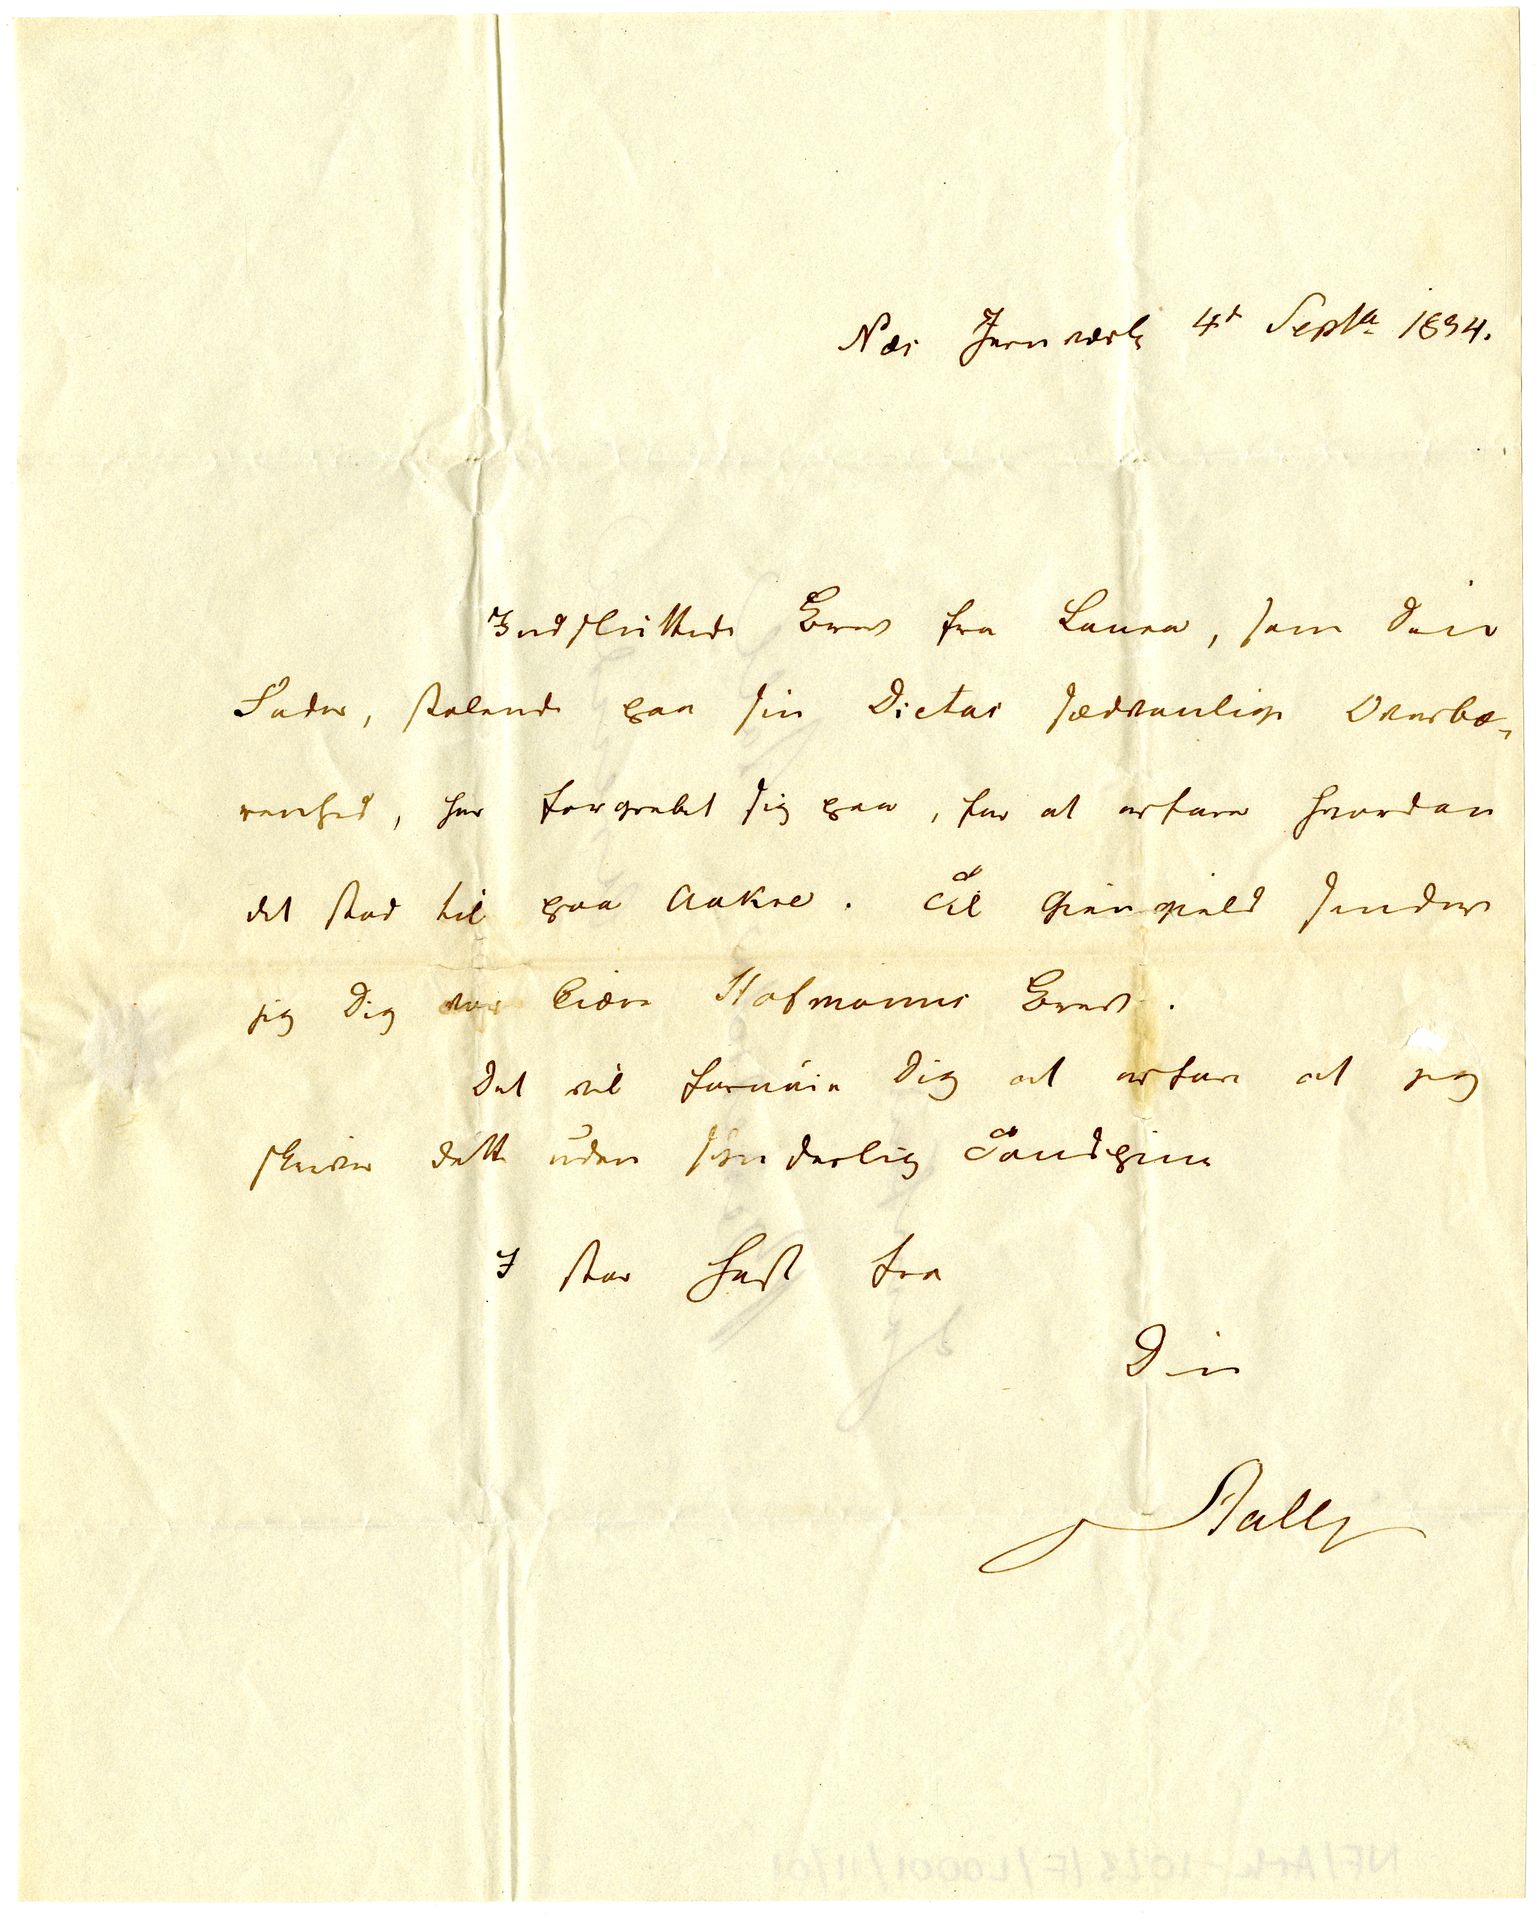 Næs Jernværk 4de Septbr 1834.
Indsluttede Brev fra Laura, som Din
Fader, stolende paa sin Dictas sædvanlige Overbæ-
renhed, har forgrebet sig paa, for at erfare hvordan
det stod til paa Aakre. Til Giengield sender
jeg Dig vor kiære Hofmanns Brev.
Det vil fornöie Dig at erfare at jeg
skriver dette uden sönderlig Tandpine
I stor Hast fra
Din